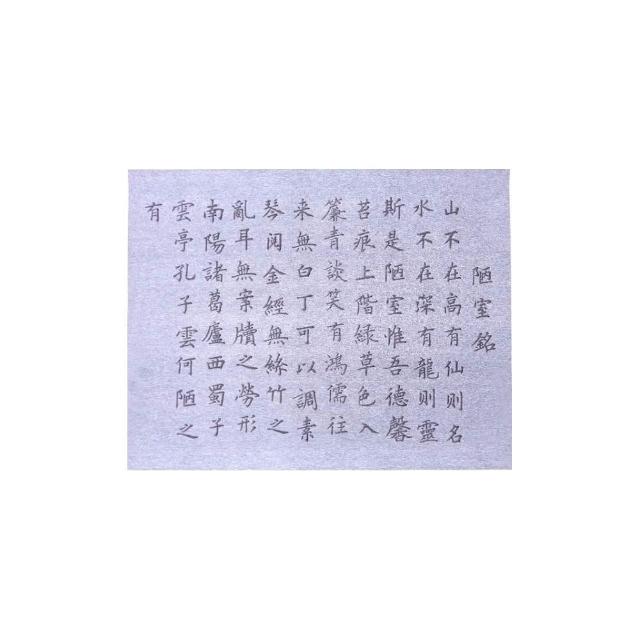 陋室銘
山不在高有仙则名
水不在深有龍则靈
斯是陋室惟吾德馨
苔痕上階緑草色入
簾青談笑有鴻儒往
来無白丁可以調素
琴阅金經無絲竹之
亂耳無案牘之勞形
南陽諸葛廬西蜀子
雲亭孔子雲何陋之
有